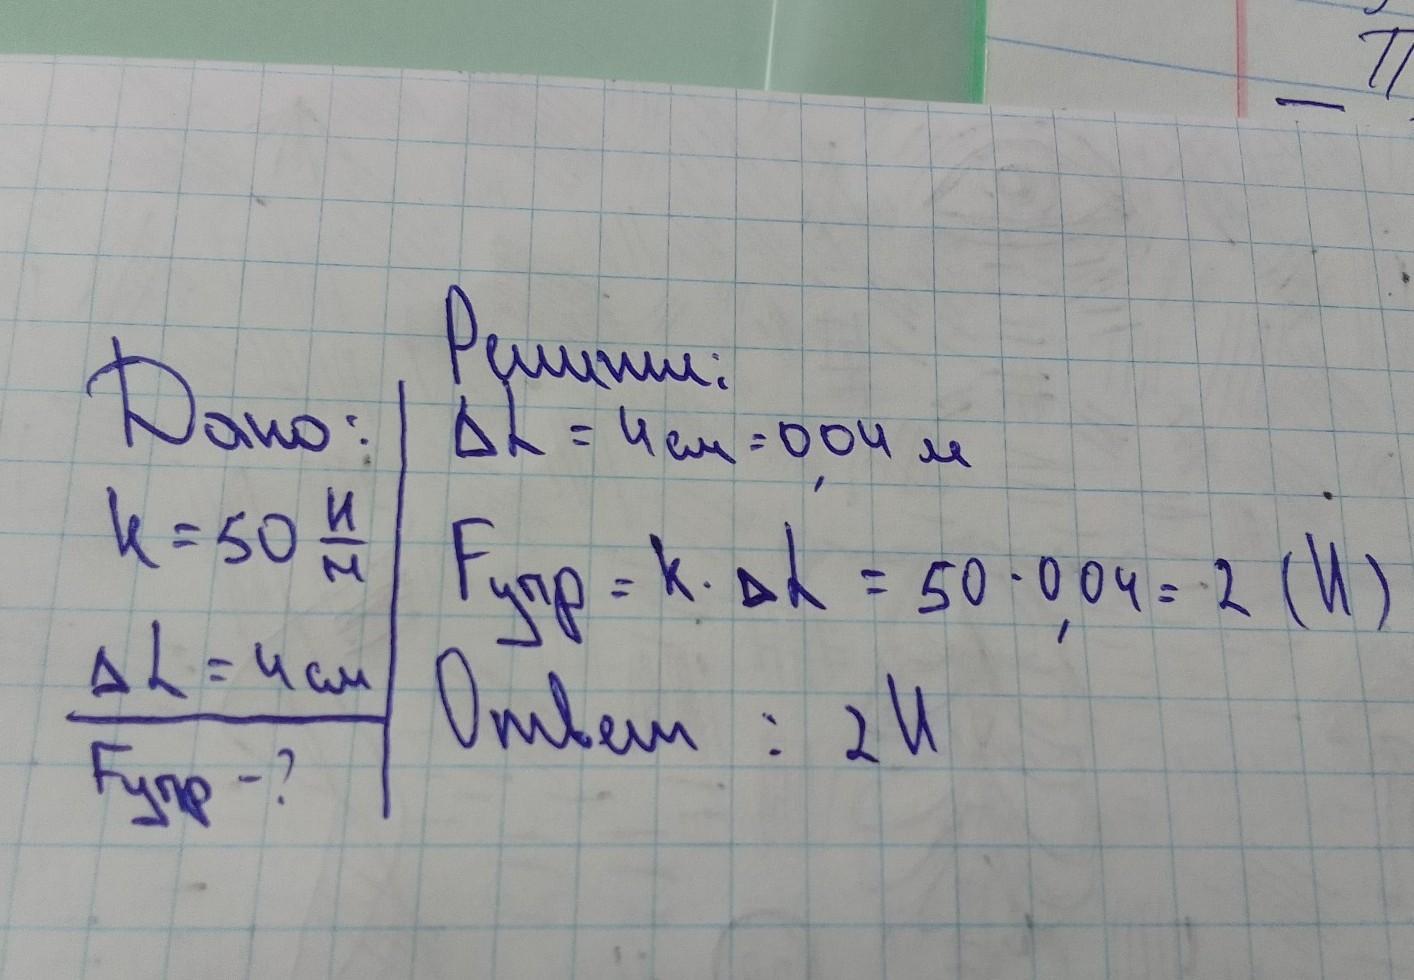 П
Дано:
k = 50 Н/м
ΔL = 4 см
Fупр - ?
Решени:
ΔL = 4 см = 0,04 м
Fупр = k · ΔL = 50 · 0,04 = 2 (Н)
Ответ : 2 Н